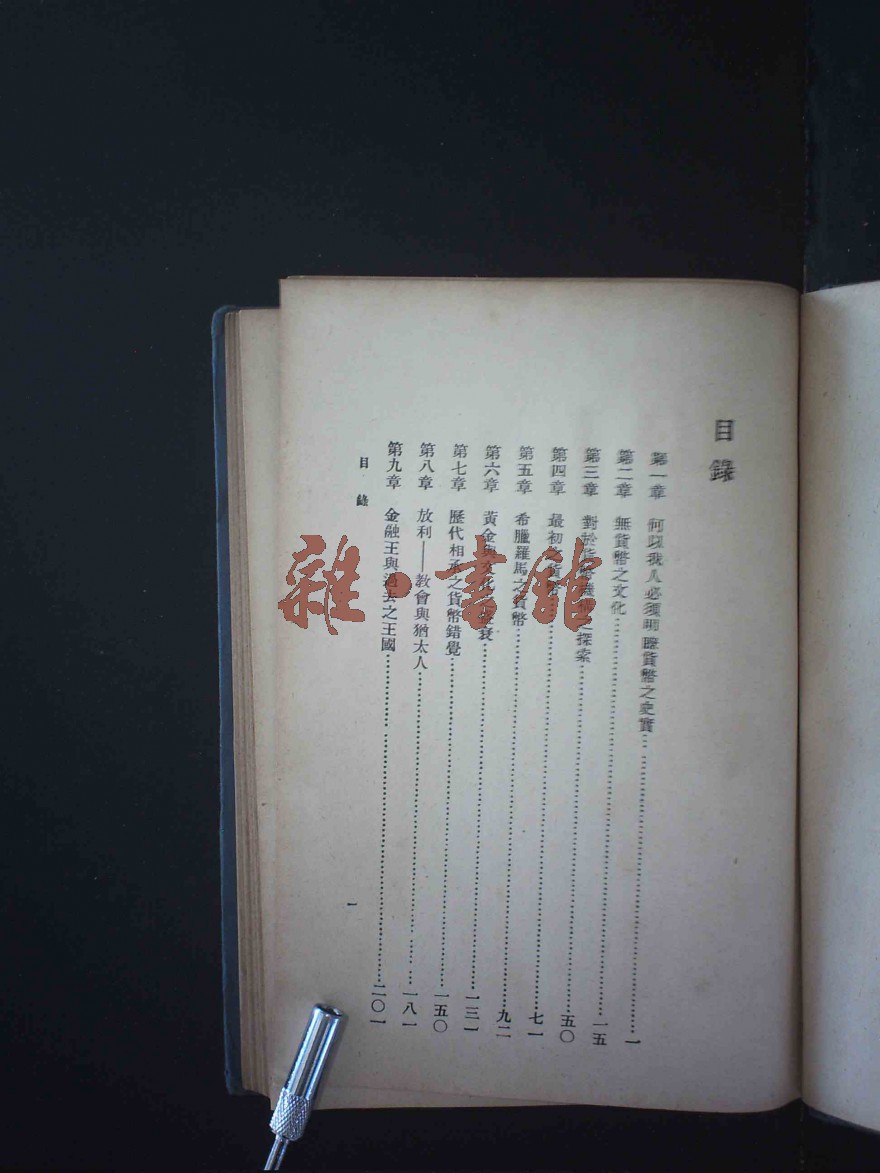 目錄
第一章 何以我人必須明瞭貨幣之史實⋯⋯一
第二章 無貨幣之文化⋯⋯一五
第三章 對於貨幣機構之探索⋯⋯五〇
第四章 最初之貨幣⋯⋯七一
第五章 希臘羅馬之貨幣⋯⋯九二
第六章 黃金與文化之衰⋯⋯一三一
第七章 歷代相承之貨幣錯覺⋯⋯一五〇
第八章 放利——教會與猶太人⋯⋯一八一
第九章 金融王與過去之王國⋯⋯二〇一
目錄
一
雜·書館